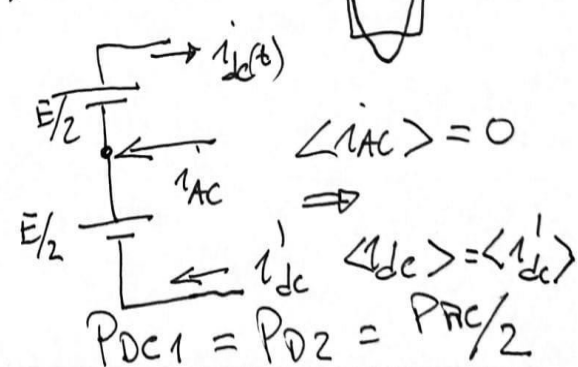 i_dc(t)
E/2
i_AC
<i_AC> = 0
⇒
E/2
i'_dc
<i_dc> = <i'_dc>
P_DC1 = P_D2 = P_AC/2